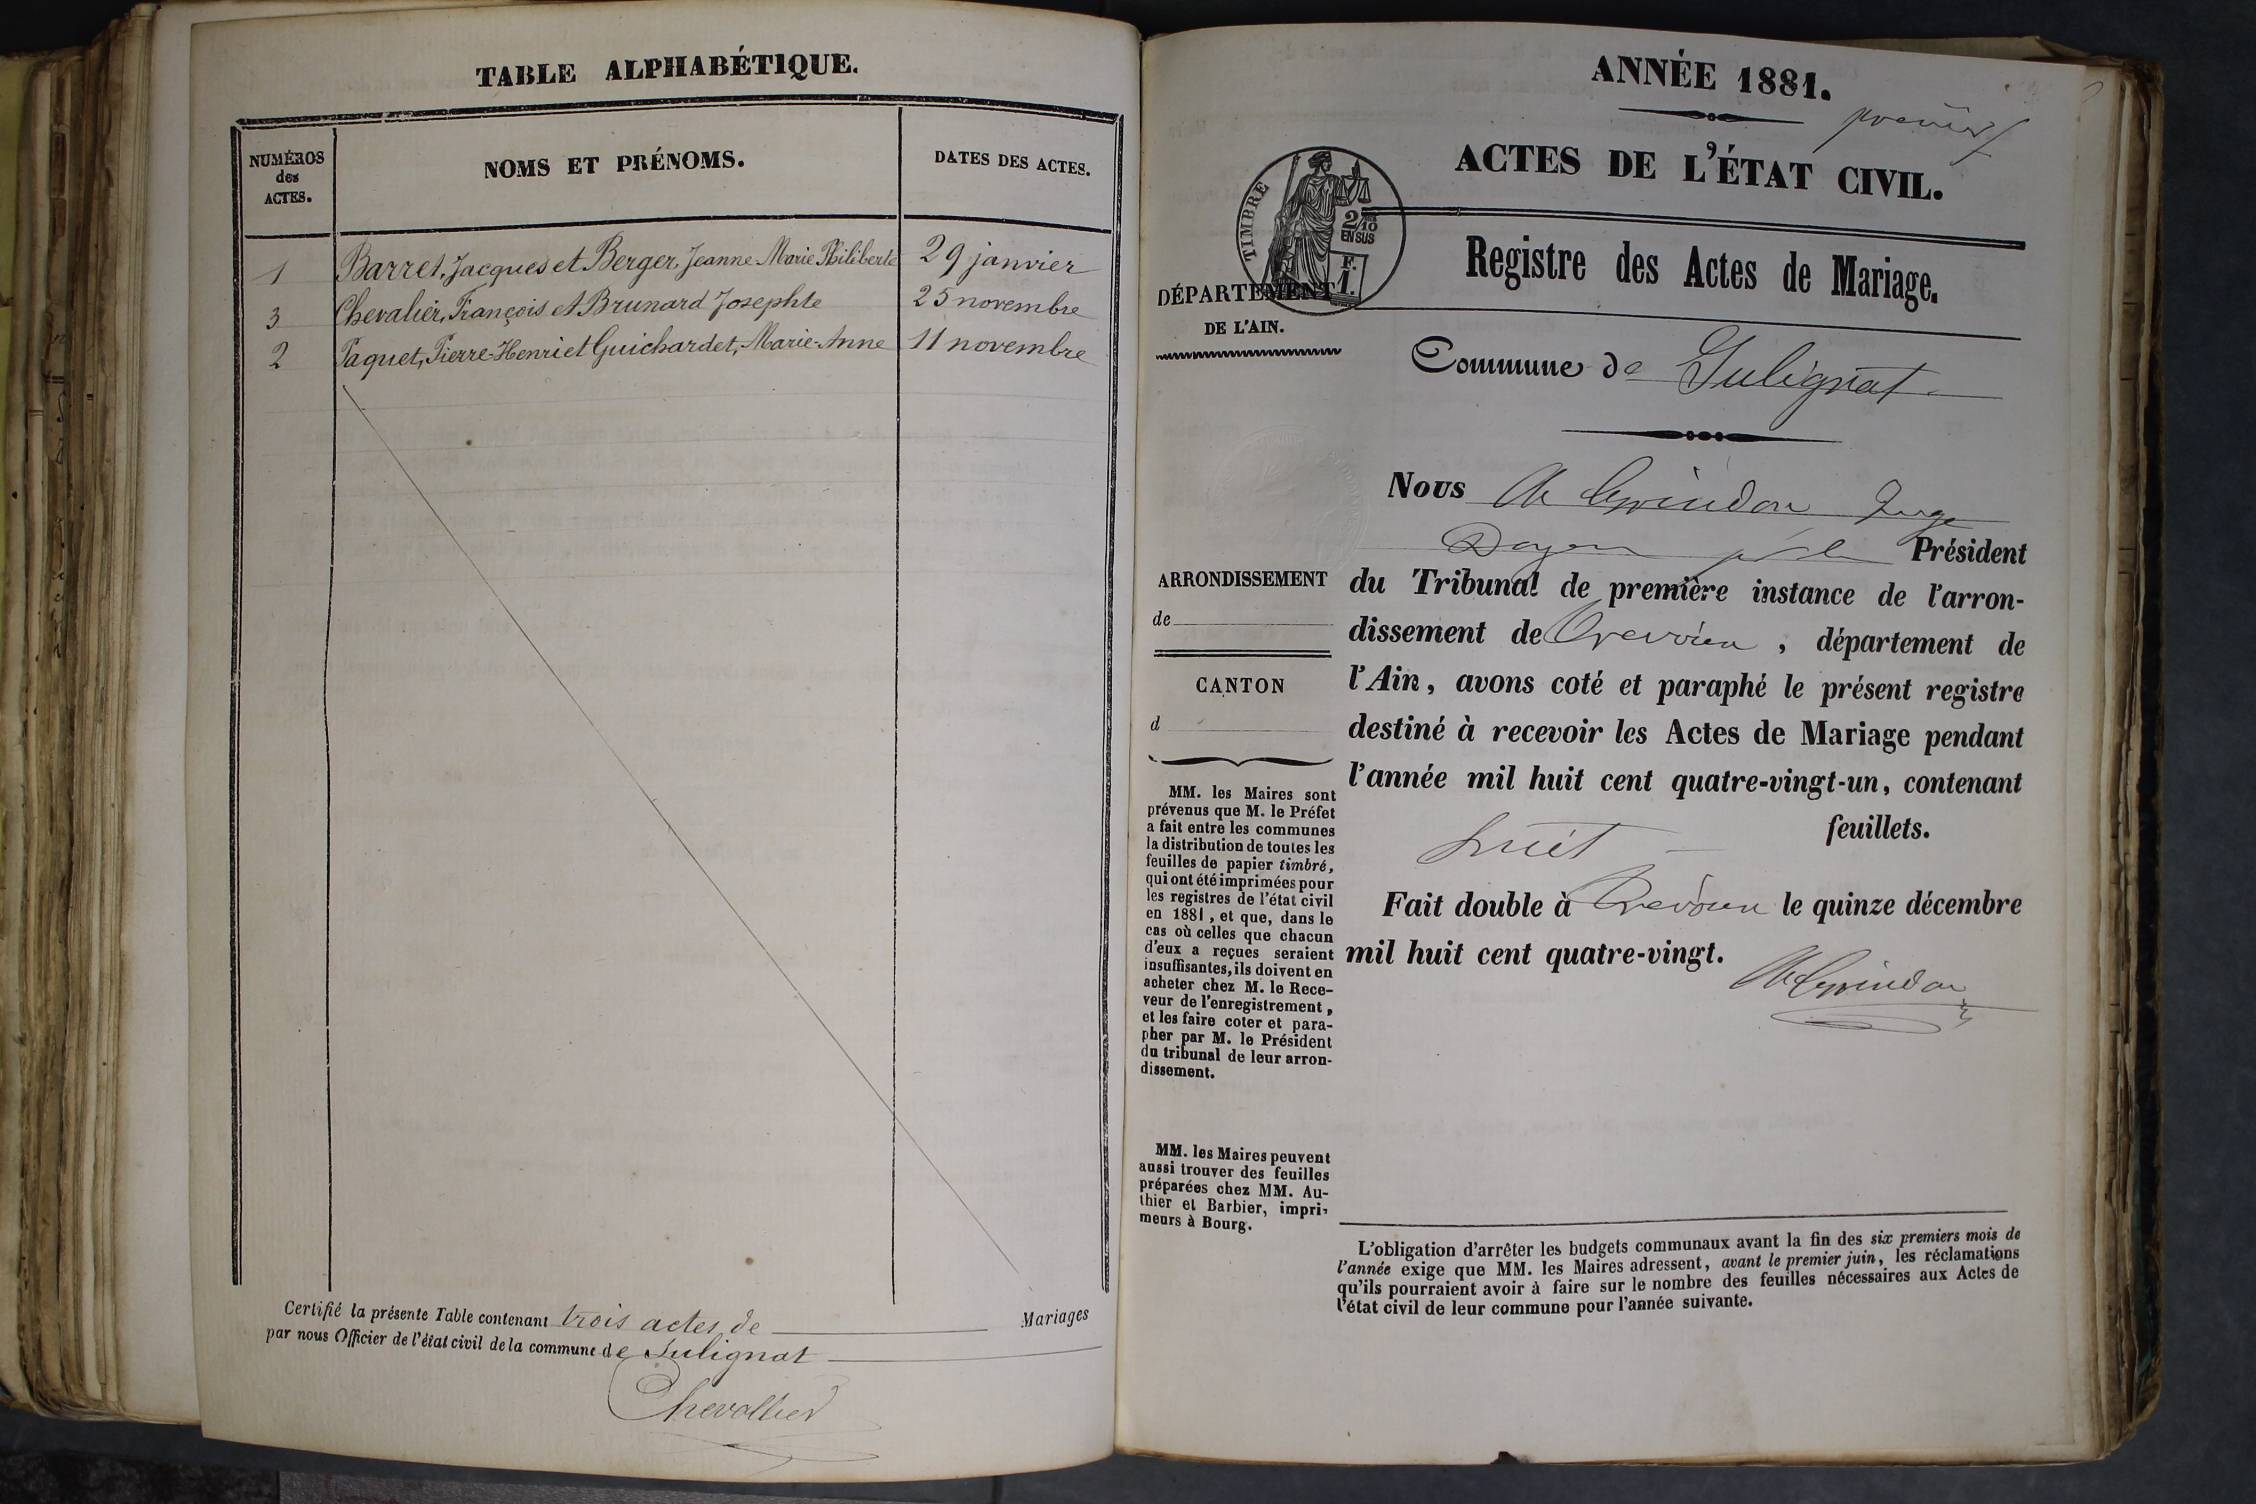 TABLE ALPHABÉTIQUE.
NUMÉROS
des
ACTES.
NOMS ET PRÉNOMS.
DATES DES ACTES.
1 Barret, Jacques et Berger, Jeanne-Marie Philiberte 29 janvier
3 Chevalier, François et Brunard Josephte 25 novembre
2 Paquet, Pierre-Henri et Guichardet, Marie-Anne 11 novembre
Certifié la présente Table contenant trois actes de Mariages
par nous Officier de l'état civil de la commune de Sulignat
Chevallier
ANNÉE 1881.
premier
ACTES DE L'ÉTAT CIVIL.
TIMBRE
2/10
EN SUS
F.
1.
Registre des Actes de Mariage.
DÉPARTEMENT
DE L'AIN.
Commune de Sulignat
Nous Juge
Doyen Président
ARRONDISSEMENT
de
CANTON
d
du Tribunal de première instance de l'arron-
dissement de Trévoux, département de
l'Ain, avons coté et paraphé le présent registre
destiné à recevoir les Actes de Mariage pendant
l'année mil huit cent quatre-vingt-un, contenant
huit feuillets.
Fait double à Trévoux le quinze décembre
mil huit cent quatre-vingt.
MM. les Maires sont
prévenus que M. le Préfet
a fait entre les communes
la distribution de toutes les
feuilles de papier timbré,
qui ont été imprimées pour
les registres de l'état civil
en 1881, et que, dans le
cas où celles que chacun
d'eux a reçues seraient
insuffisantes, ils doivent en
acheter chez M. le Rece-
veur de l'enregistrement,
et les faire coter et para-
pher par M. le Président
du tribunal de leur arron-
dissement.
MM. les Maires peuvent
aussi trouver des feuilles
préparées chez MM. Au-
thier et Barbier, impri-
meurs à Bourg.
L'obligation d'arrêter les budgets communaux avant la fin des six premiers mois de
l'année exige que MM. les Maires adressent, avant le premier juin, les réclamations
qu'ils pourraient avoir à faire sur le nombre des feuilles nécessaires aux Actes de
l'état civil de leur commune pour l'année suivante.